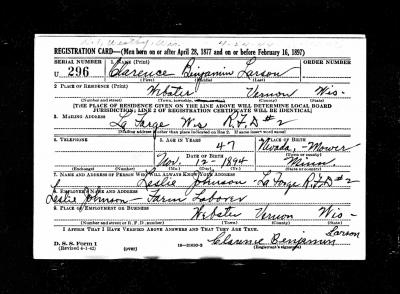 REGISTRATION CARD—(Men born on or after April 28, 1877 and on or before February 16, 1897)
SERIAL NUMBER 1. NAME (Print) ORDER NUMBER
U 296 Clarence Benjamin Larson
(First) (Middle) (Last)
2. PLACE OF RESIDENCE (Print)
Webster Vernon Wis-
(Number and street) (Town, township, village, or city) (County) (State)
[THE PLACE OF RESIDENCE GIVEN ON THE LINE ABOVE WILL DETERMINE LOCAL BOARD
JURISDICTION; LINE 2 OF REGISTRATION CERTIFICATE WILL BE IDENTICAL]
3. MAILING ADDRESS
La Farge Wis R.F.D #2
[Mailing address if other than place indicated on line 2. If same insert word same]
4. TELEPHONE 5. AGE IN YEARS 6. PLACE OF BIRTH
47 Nevada, - Mower
DATE OF BIRTH (Town or county)
Nov. 12 - 1894 Minn
(Exchange) (Number) (Mo.) (Day) (Yr.) (State or country)
7. NAME AND ADDRESS OF PERSON WHO WILL ALWAYS KNOW YOUR ADDRESS
Leslie Johnson - La Farge R.F.D #2
8. EMPLOYER'S NAME AND ADDRESS
Leslie Johnson - Farm Laborer
9. PLACE OF EMPLOYMENT OR BUSINESS
Webster Vernon Wis-
(Number and street or R. F. D. number) (Town) (County) (State)
I AFFIRM THAT I HAVE VERIFIED ABOVE ANSWERS AND THAT THEY ARE TRUE.
Clarence Benjamin Larson
D. S. S. Form 1
(Revised 4-1-42) (over) 16—21630-2 (Registrant's signature)